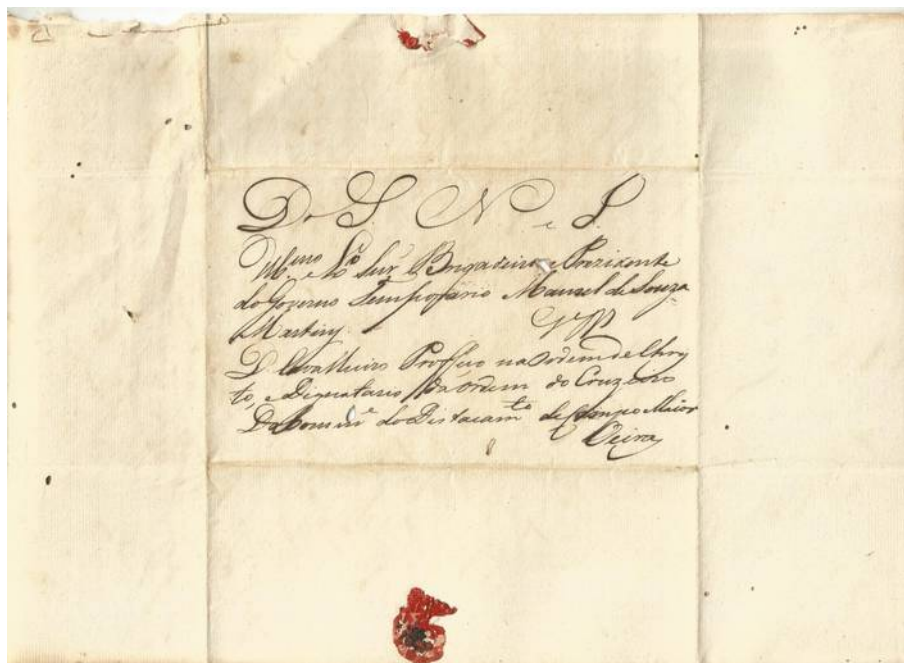 Do S. N e S.
Illmo e Exo Snr Brigadeiro e Prezidente
do Governo Temporario Manuel de Souza
Martins
Cavalleiro Proffeço na Ordem de Chris
to, e Dignatario da Ordem do Cruzeiro
Do Comme do Distacamto de Campo Maior
Oeiras